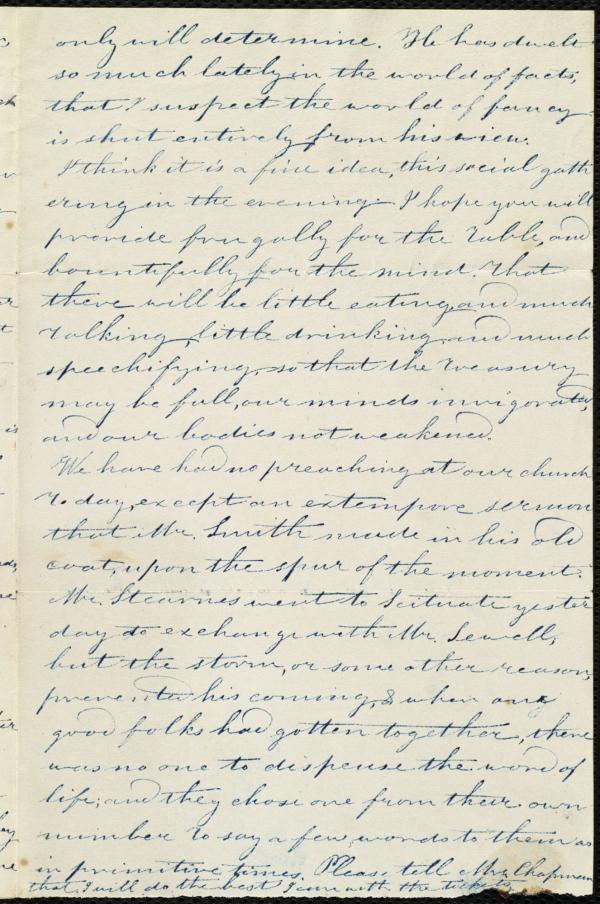 only will determine. He has dwelt
so much lately in the world of facts,
that I suspect the world of fancy
is shut entirely from his view.
I think it is a fine idea, this social gath
ering in the evening. I hope you will
provide frugally for the table, and
bountifully for the mind. That
there will be little eating, and much
talking, little drinking, and much
speechifying, so that the treasury
may be full, our minds invigorated,
and our bodies not weakened.
We have had no preaching at our church
to day, except an extempore sermon
that Mr. Smith made in his old
coat, upon the spur of the moment.
Mr. Stearnes went to Scituate yester
day to exchange with Mr. Sewell,
but the storm, or some other reason,
prevented his coming, & when our
good folks had gotten together, there
was no one to dispense the word of
life; and they chose one from their own
number to say a few words to them as
in primitive times. Please tell Mrs. Chapman
that I will do the best I can with the tickets